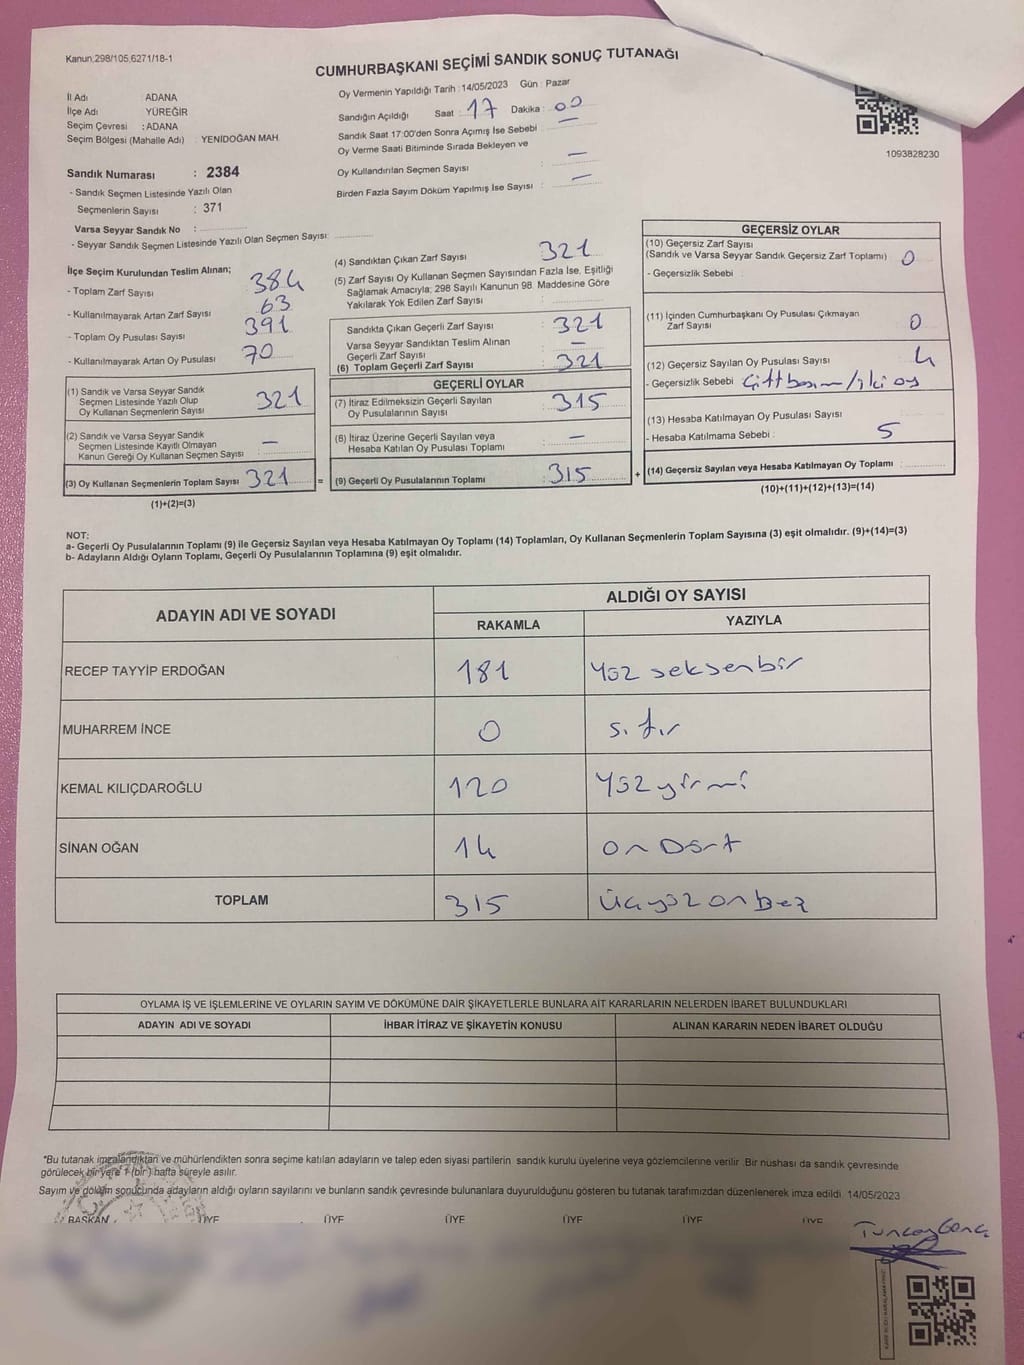 Kanun:298/105,6271/18-1
CUMHURBAŞKANI SEÇİMİ SANDIK SONUÇ TUTANAĞI
İl Adı ADANA
İlçe Adı YÜREĞİR
Seçim Çevresi : ADANA
Seçim Bölgesi (Mahalle Adı) : YENİDOĞAN MAH.
Oy Vermenin Yapıldığı Tarih : 14/05/2023 Gün : Pazar
Sandığın Açıldığı Saat : 17 Dakika : 00
Sandık Saat 17:00'den Sonra Açımış İse Sebebi : —
Oy Verme Saati Bitiminde Sırada Bekleyen ve
Oy Kullandırılan Seçmen Sayısı : —
Birden Fazla Sayım Döküm Yapılmış İse Sayısı : —
1093828230
Sandık Numarası : 2384
- Sandık Seçmen Listesinde Yazılı Olan
Seçmenlerin Sayısı : 371
Varsa Seyyar Sandık No :
- Seyyar Sandık Seçmen Listesinde Yazılı Olan Seçmen Sayısı:
İlçe Seçim Kurulundan Teslim Alınan;
- Toplam Zarf Sayısı 384
- Kullanılmayarak Artan Zarf Sayısı 63
- Toplam Oy Pusulası Sayısı 391
- Kullanılmayarak Artan Oy Pusulası 70
(1) Sandık ve Varsa Seyyar Sandık
Seçmen Listesinde Yazılı Olup
Oy Kullanan Seçmenlerin Sayısı 321
(2) Sandık ve Varsa Seyyar Sandık
Seçmen Listesinde Kayıtlı Olmayan
Kanun Gereği Oy Kullanan Seçmen Sayısı —
(3) Oy Kullanan Seçmenlerin Toplam Sayısı 321
(1)+(2)=(3)
(4) Sandıktan Çıkan Zarf Sayısı 321
(5) Zarf Sayısı Oy Kullanan Seçmen Sayısından Fazla İse, Eşitliği
Sağlamak Amacıyla; 298 Sayılı Kanunun 98. Maddesine Göre
Yakılarak Yok Edilen Zarf Sayısı :
Sandıkta Çıkan Geçerli Zarf Sayısı : 321
Varsa Seyyar Sandıktan Teslim Alınan
Geçerli Zarf Sayısı : —
(6) Toplam Geçerli Zarf Sayısı : 321
GEÇERLİ OYLAR
(7) İtiraz Edilmeksizin Geçerli Sayılan
Oy Pusulalarının Sayısı : 315
(8) İtiraz Üzerine Geçerli Sayılan veya
Hesaba Katılan Oy Pusulası Toplamı : —
= (9) Geçerli Oy Pusulalarının Toplamı : 315
GEÇERSİZ OYLAR
(10) Geçersiz Zarf Sayısı
(Sandık ve Varsa Seyyar Sandık Geçersiz Zarf Toplamı) 0
- Geçersizlik Sebebi
(11) İçinden Cumhurbaşkanı Oy Pusulası Çıkmayan
Zarf Sayısı 0
(12) Geçersiz Sayılan Oy Pusulası Sayısı 4
- Geçersizlik Sebebi Çift basım/iki oy
(13) Hesaba Katılmayan Oy Pusulası Sayısı
- Hesaba Katılmama Sebebi : 5
+ (14) Geçersiz Sayılan veya Hesaba Katılmayan Oy Toplamı :
(10)+(11)+(12)+(13)=(14)
NOT:
a- Geçerli Oy Pusulalarının Toplamı (9) ile Geçersiz Sayılan veya Hesaba Katılmayan Oy Toplamı (14) Toplamları, Oy Kullanan Seçmenlerin Toplam Sayısına (3) eşit olmalıdır. (9)+(14)=(3)
b- Adayların Aldığı Oyların Toplamı, Geçerli Oy Pusulalarının Toplamına (9) eşit olmalıdır.
ADAYIN ADI VE SOYADI ALDIĞI OY SAYISI
RAKAMLA YAZIYLA
RECEP TAYYİP ERDOĞAN 181 Yüz seksenbir
MUHARREM İNCE 0 Sıfır
KEMAL KILIÇDAROĞLU 120 Yüz yirmi
SİNAN OĞAN 14 on Dört
TOPLAM 315 üçyüz on beş
OYLAMA İŞ VE İŞLEMLERİNE VE OYLARIN SAYIM VE DÖKÜMÜNE DAİR ŞİKAYETLERLE BUNLARA AİT KARARLARIN NELERDEN İBARET BULUNDUKLARI
ADAYIN ADI VE SOYADI İHBAR İTİRAZ VE ŞİKAYETİN KONUSU ALINAN KARARIN NEDEN İBARET OLDUĞU
*Bu tutanak imzalandıktan ve mühürlendikten sonra seçime katılan adayların ve talep eden siyasi partilerin sandık kurulu üyelerine veya gözlemcilerine verilir. Bir nushası da sandık çevresinde
görülecek bir yere 1 (bir) hafta süreyle asılır.
Sayım ve döküm sonucunda adayların aldığı oyların sayılarını ve bunların sandık çevresinde bulunanlara duyurulduğunu gösteren bu tutanak tarafımızdan düzenlenerek imza edildi. 14/05/2023
BAŞKAN ÜYE ÜYE ÜYE ÜYE ÜYE ÜYE
Tuncay Genç